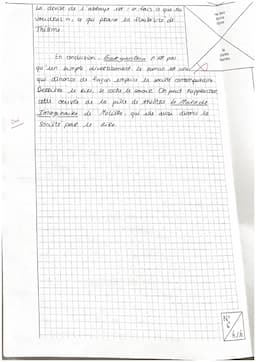 La devise de l'abbaye est : « fais ce que tu
voudras », ce qui prouve la de
Thélème.
En conclusion, Gargantua n'est pas
qu'un simple divertissement, le roman est une
qui dénonce de façon implicite la société contemporaine.
Derrière le rire, se cache le savoir. On peut rapprocher
cette œuvre de la pièce de théâtre le Malade
Imaginaire de Molière, qui elle aussi dénonce la
société par le rire.
Oui
N°
4/4